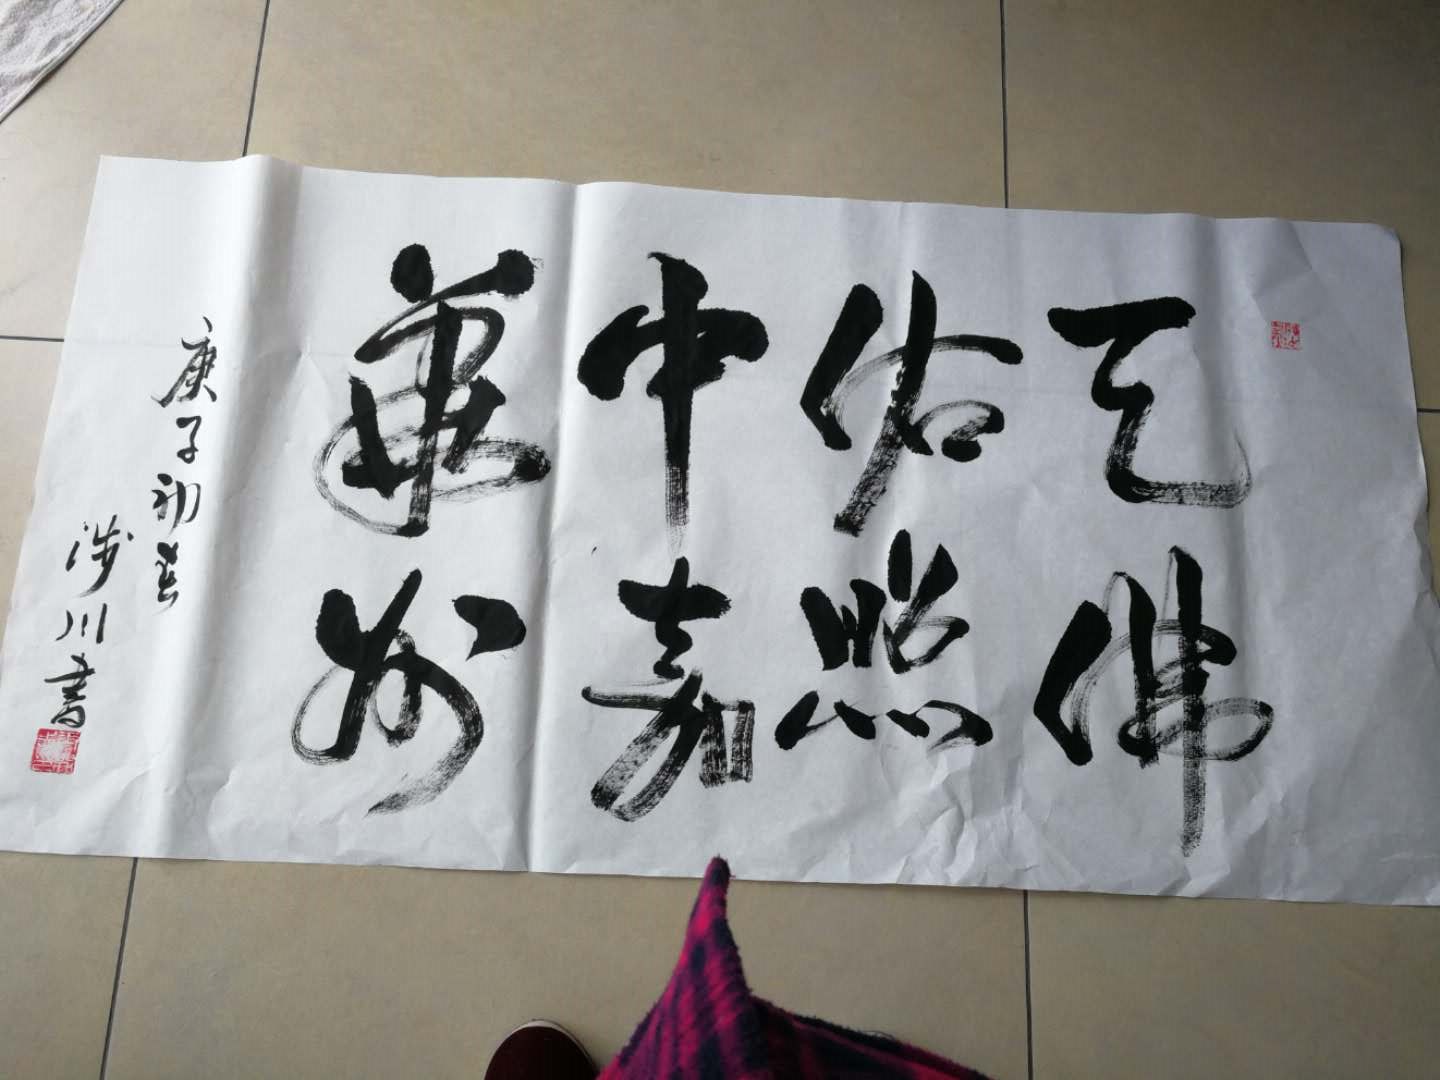 天佑中華
佛照嘉州
庚子初春
涉川書